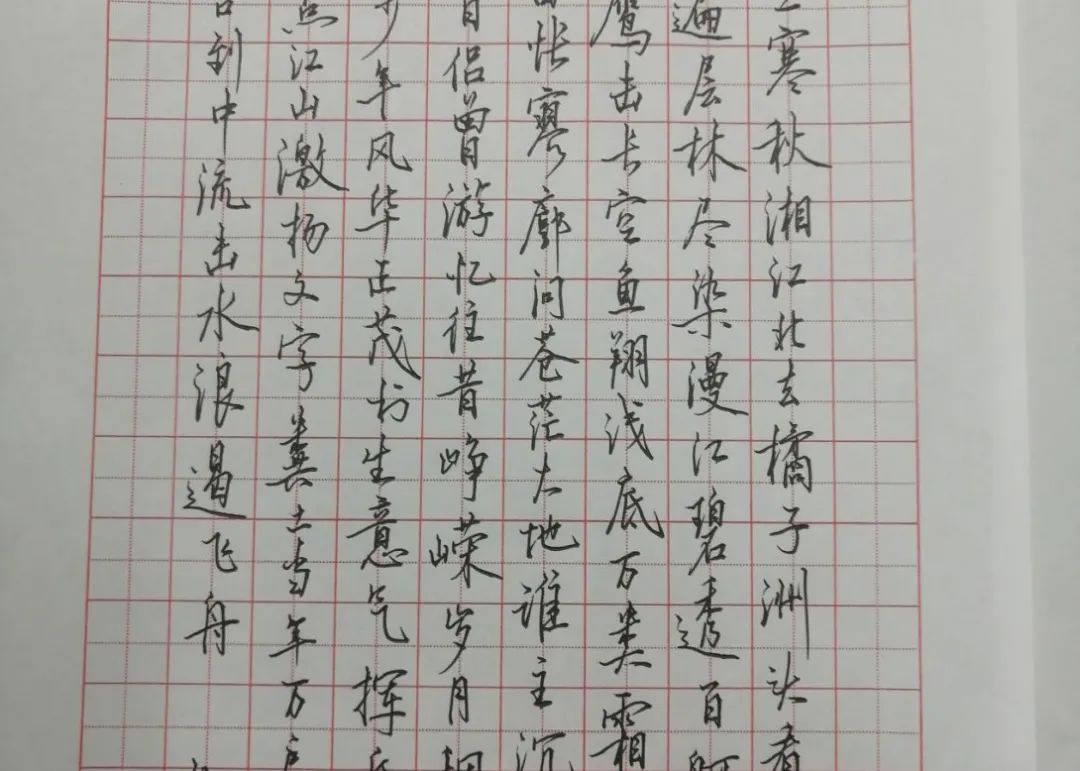 寒秋湘江北去橘子洲头看
遍层林尽染漫江碧透百舸
鹰击长空鱼翔浅底万类霜
怅寥廓问苍茫大地谁主沉
侣曾游忆往昔峥嵘岁月
少年风华正茂书生意气挥
点江山激扬文字粪土当年万户
到中流击水浪遏飞舟